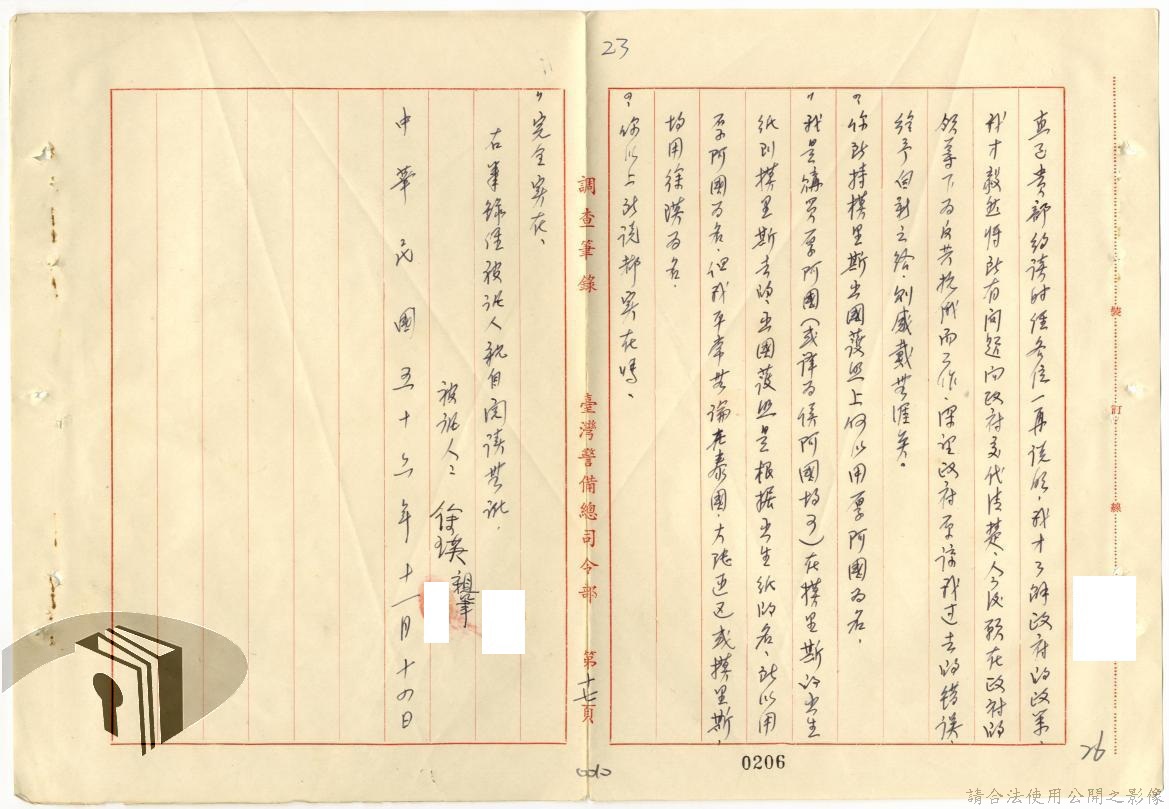 23
直至貴部約談時經各位一再說明，我才了解政府的政策，
我才毅然將所有問題向政府交代清楚、今後願在政府的
領導下為反共抗俄而工作，深望政府原諒我過去的錯誤，
給予自新之路，則感戴無涯矣。
〃你所持模里斯出國護照上何以用厚阿國為名，
〃我是購買厚阿國(或譯為侯阿國均可)在模里斯的出生
紙到模里斯去的，出國護照是根據出生紙的名，所以用
厚阿國為名，但我平常無論在泰國，大陸匪區或模里斯，
均用徐瑛為名，
〃你以上所說都實在嗎、
〃完全實在、
右筆錄經被訊人親自閱讀無訛，
被訊人：徐瑛 親筆
中華民國五十六年十一月十四日
調查筆錄 臺灣警備總司令部 第十七頁
裝 訂 線
0206
26
請合法使用公開之影像